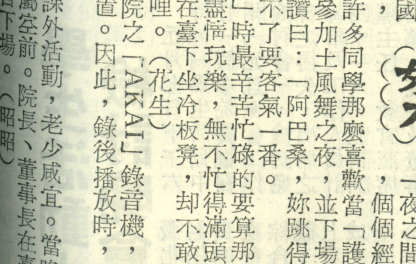 國
一夜之間
，個個經
許多同學那麼喜歡當「護
參加土風舞之夜，並下場
讚曰：「阿巴桑，妳跳得
不了要客氣一番。
」時最辛苦忙碌的要算那
盡情玩樂，無不忙得滿頭
在臺下坐冷板凳，却不敢
哩。（花生）
院之「AKAI」錄音機，
道。因此，錄後播放時，
課外活動，老少咸宜。當晚
屬空前。院長、董事長在
下場。（昭昭）